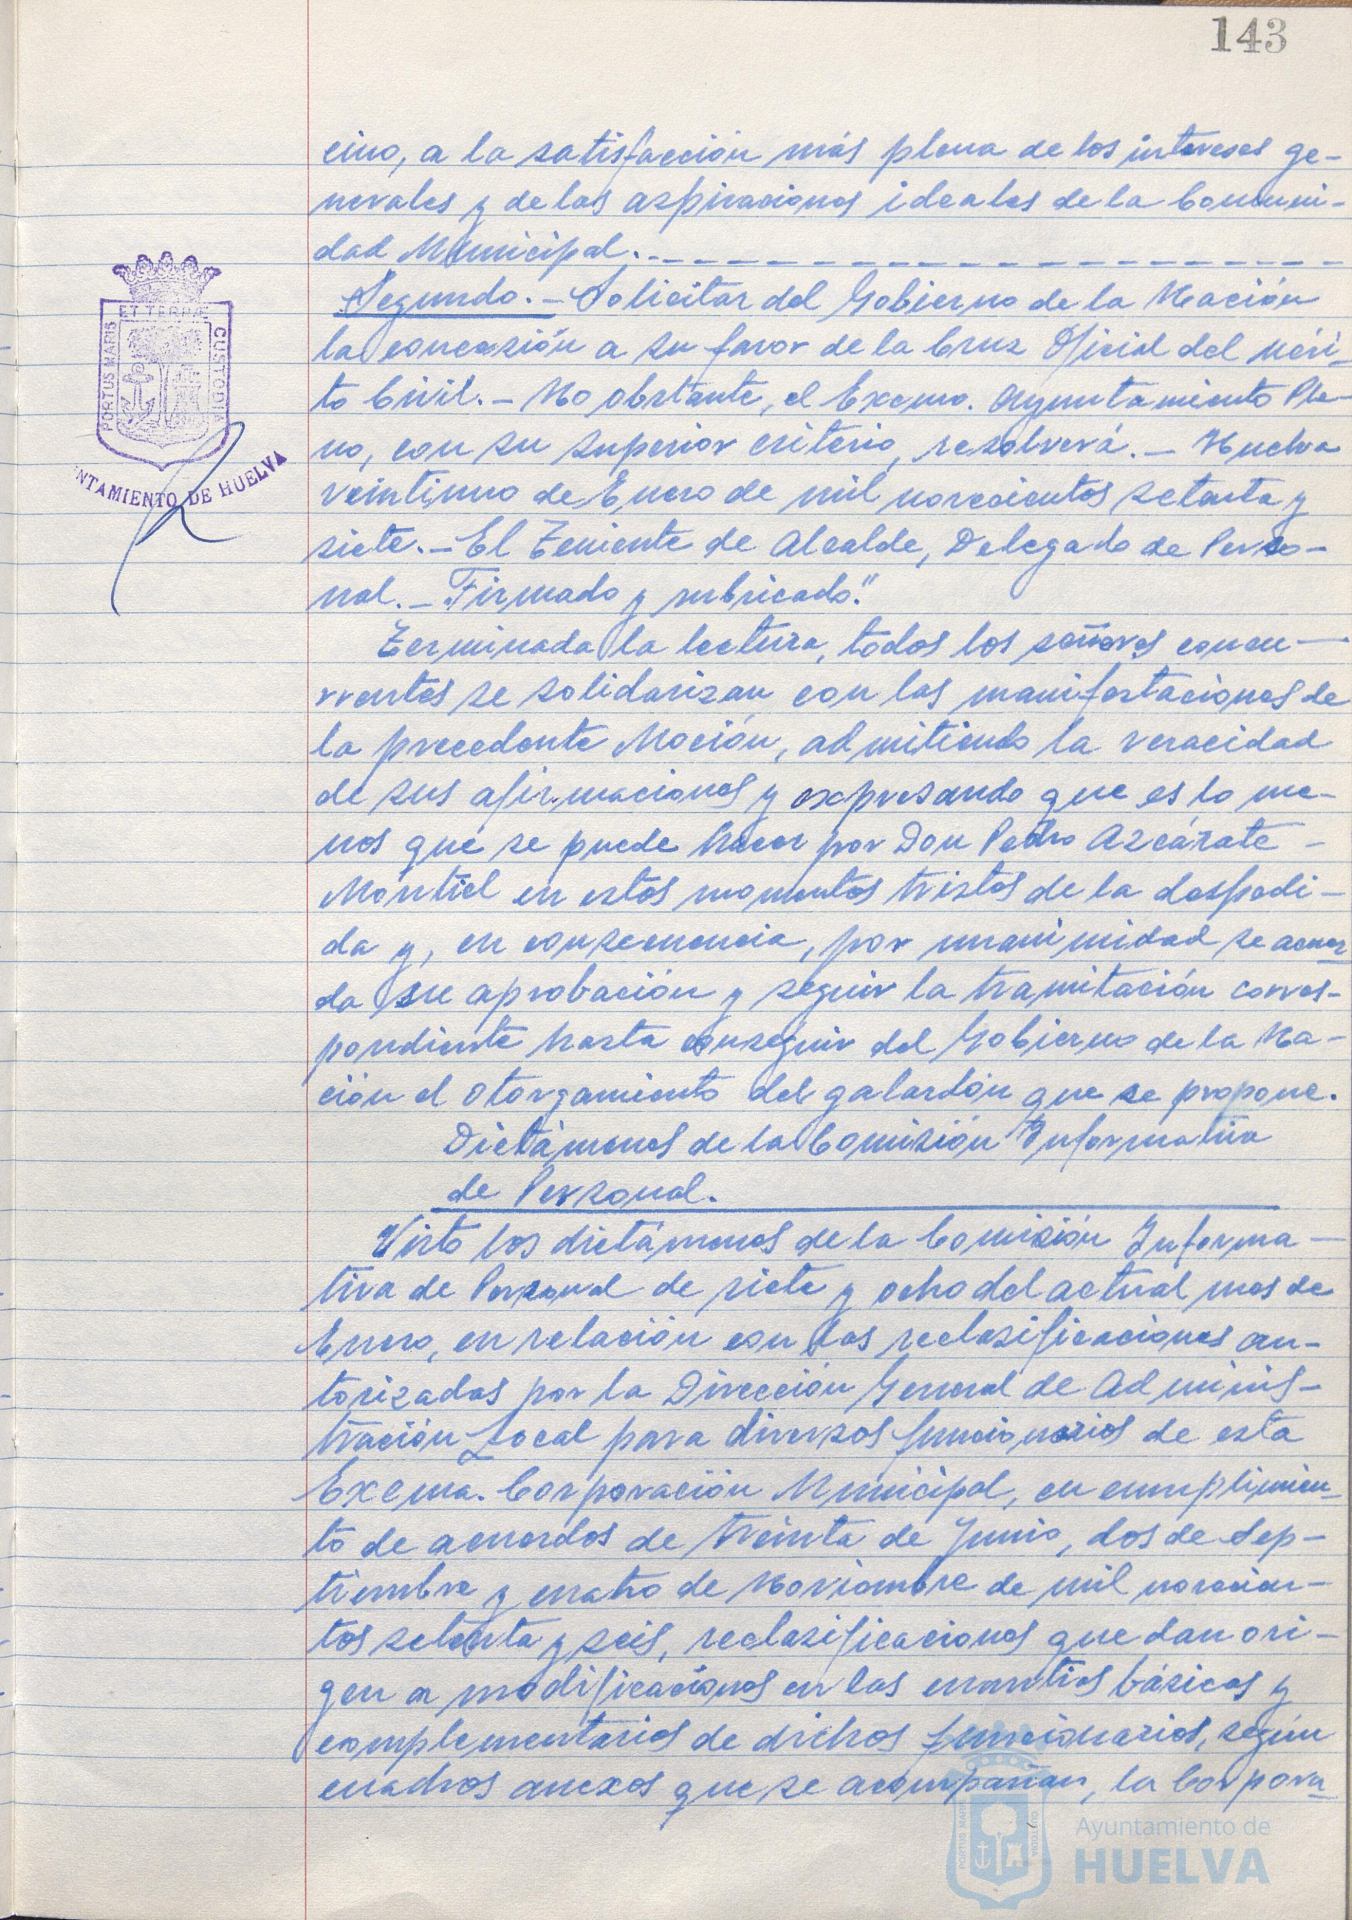 143
cino, a la satisfacción más plena de los intereses ge-
nerales y de las aspiraciones ideales de la Comuni-
dad Municipal.
Segundo.- Solicitar del Gobierno de la Nación
la concesión a su favor de la Cruz Oficial del Méri-
to Civil.- No obstante, el Excmo. Ayuntamiento Ple-
no, con su superior criterio, resolverá.- Huelva
veintiuno de Enero de mil novecientos setenta y
siete.- El Teniente de Alcalde, Delegado de Perso-
nal.- Firmado y rubricado."
Terminada la lectura, todos los señores concu-
rrentes se solidarizan con las manifestaciones de
la precedente Moción, admitiendo la veracidad
de sus afirmaciones y expresando que es lo me-
nos que se puede hacer por Don Pedro Azcárate
Montiel en estos momentos tristes de la despedi-
da y, en consecuencia, por unanimidad se acuer-
da su aprobación y seguir la tramitación corres-
pondiente hasta conseguir del Gobierno de la Na-
ción el otorgamiento del galardón que se propone.
Dictámenes de la Comisión Informativa
de Personal.
Visto los dictámenes de la Comisión Informa-
tiva de Personal de siete y ocho del actual mes de
Enero, en relación con las reclasificaciones au-
torizadas por la Dirección General de Adminis-
tración Local para diversos funcionarios de esta
Excma. Corporación Municipal, en cumplimien-
to de acuerdos de treinta de Junio, dos de Sep-
tiembre y cuatro de Noviembre de mil novecien-
tos setenta y seis, reclasificaciones que dan ori-
gen a modificaciones en las cuantías básicas y
complementarios de dichos funcionarios, según
cuadros anexos que se acompañan, la Corpora-
PORTUS MARIS
ET TERRÆ
CUSTODIA
NTAMIENTO DE HUELVA
Ayuntamiento de
HUELVA